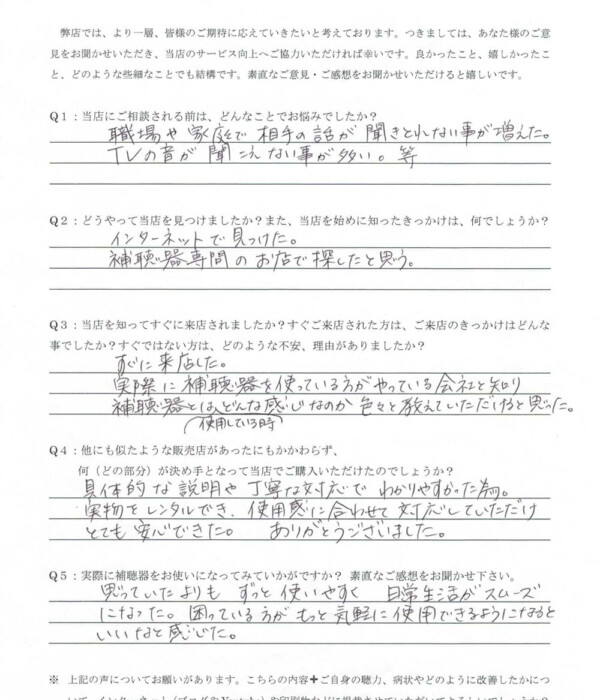 弊店では、より一層、皆様のご期待に応えていきたいと考えております。つきましては、あなた様のご意
見をお聞かせいただき、当店のサービス向上へご協力いただければ幸いです。良かったこと、嬉しかったこ
と、どのような些細なことでも結構です。素直なご意見・ご感想をお聞かせいただけると嬉しいです。
Q1：当店にご相談される前は、どんなことでお悩みでしたか？
職場や家庭で相手の話が聞きとれない事が増えた。
TVの音が聞こえない事が多い。等
Q2：どうやって当店を見つけましたか？また、当店を始めに知ったきっかけは、何でしょうか？
インターネットで見つけた。
補聴器専問のお店で探したと思う。
Q3：当店を知ってすぐに来店されましたか？すぐご来店された方は、ご来店のきっかけはどんな
事でしたか？すぐではない方は、どのような不安、理由がありましたか？
すぐに来店した。
実際に補聴器を使っている方がやっている会社と知り
補聴器とは、どんな感じなのか色々と教えていただけると思った。
使用している時
Q4：他にも似たような販売店があったにもかかわらず、
何（どの部分）が決め手となって当店でご購入いただけたのでしょうか？
具体的な説明や丁寧な対応でわかりやすかった為。
実物をレンタルでき、使用感に合わせて対応していただけ
とても安心できた。 ありがとうございました。
Q5：実際に補聴器をお使いになってみていかがですか？ 素直なご感想をお聞かせ下さい。
思っていたよりもずっと使いやすく 日常生活がスムーズ
になった。困っている方がもっと気軽に使用できるようになると
いいなと感じた。
※ 上記の声についてお願いがあります。こちらの内容＋ご自身の聴力、病状やどのように改善したかにつ